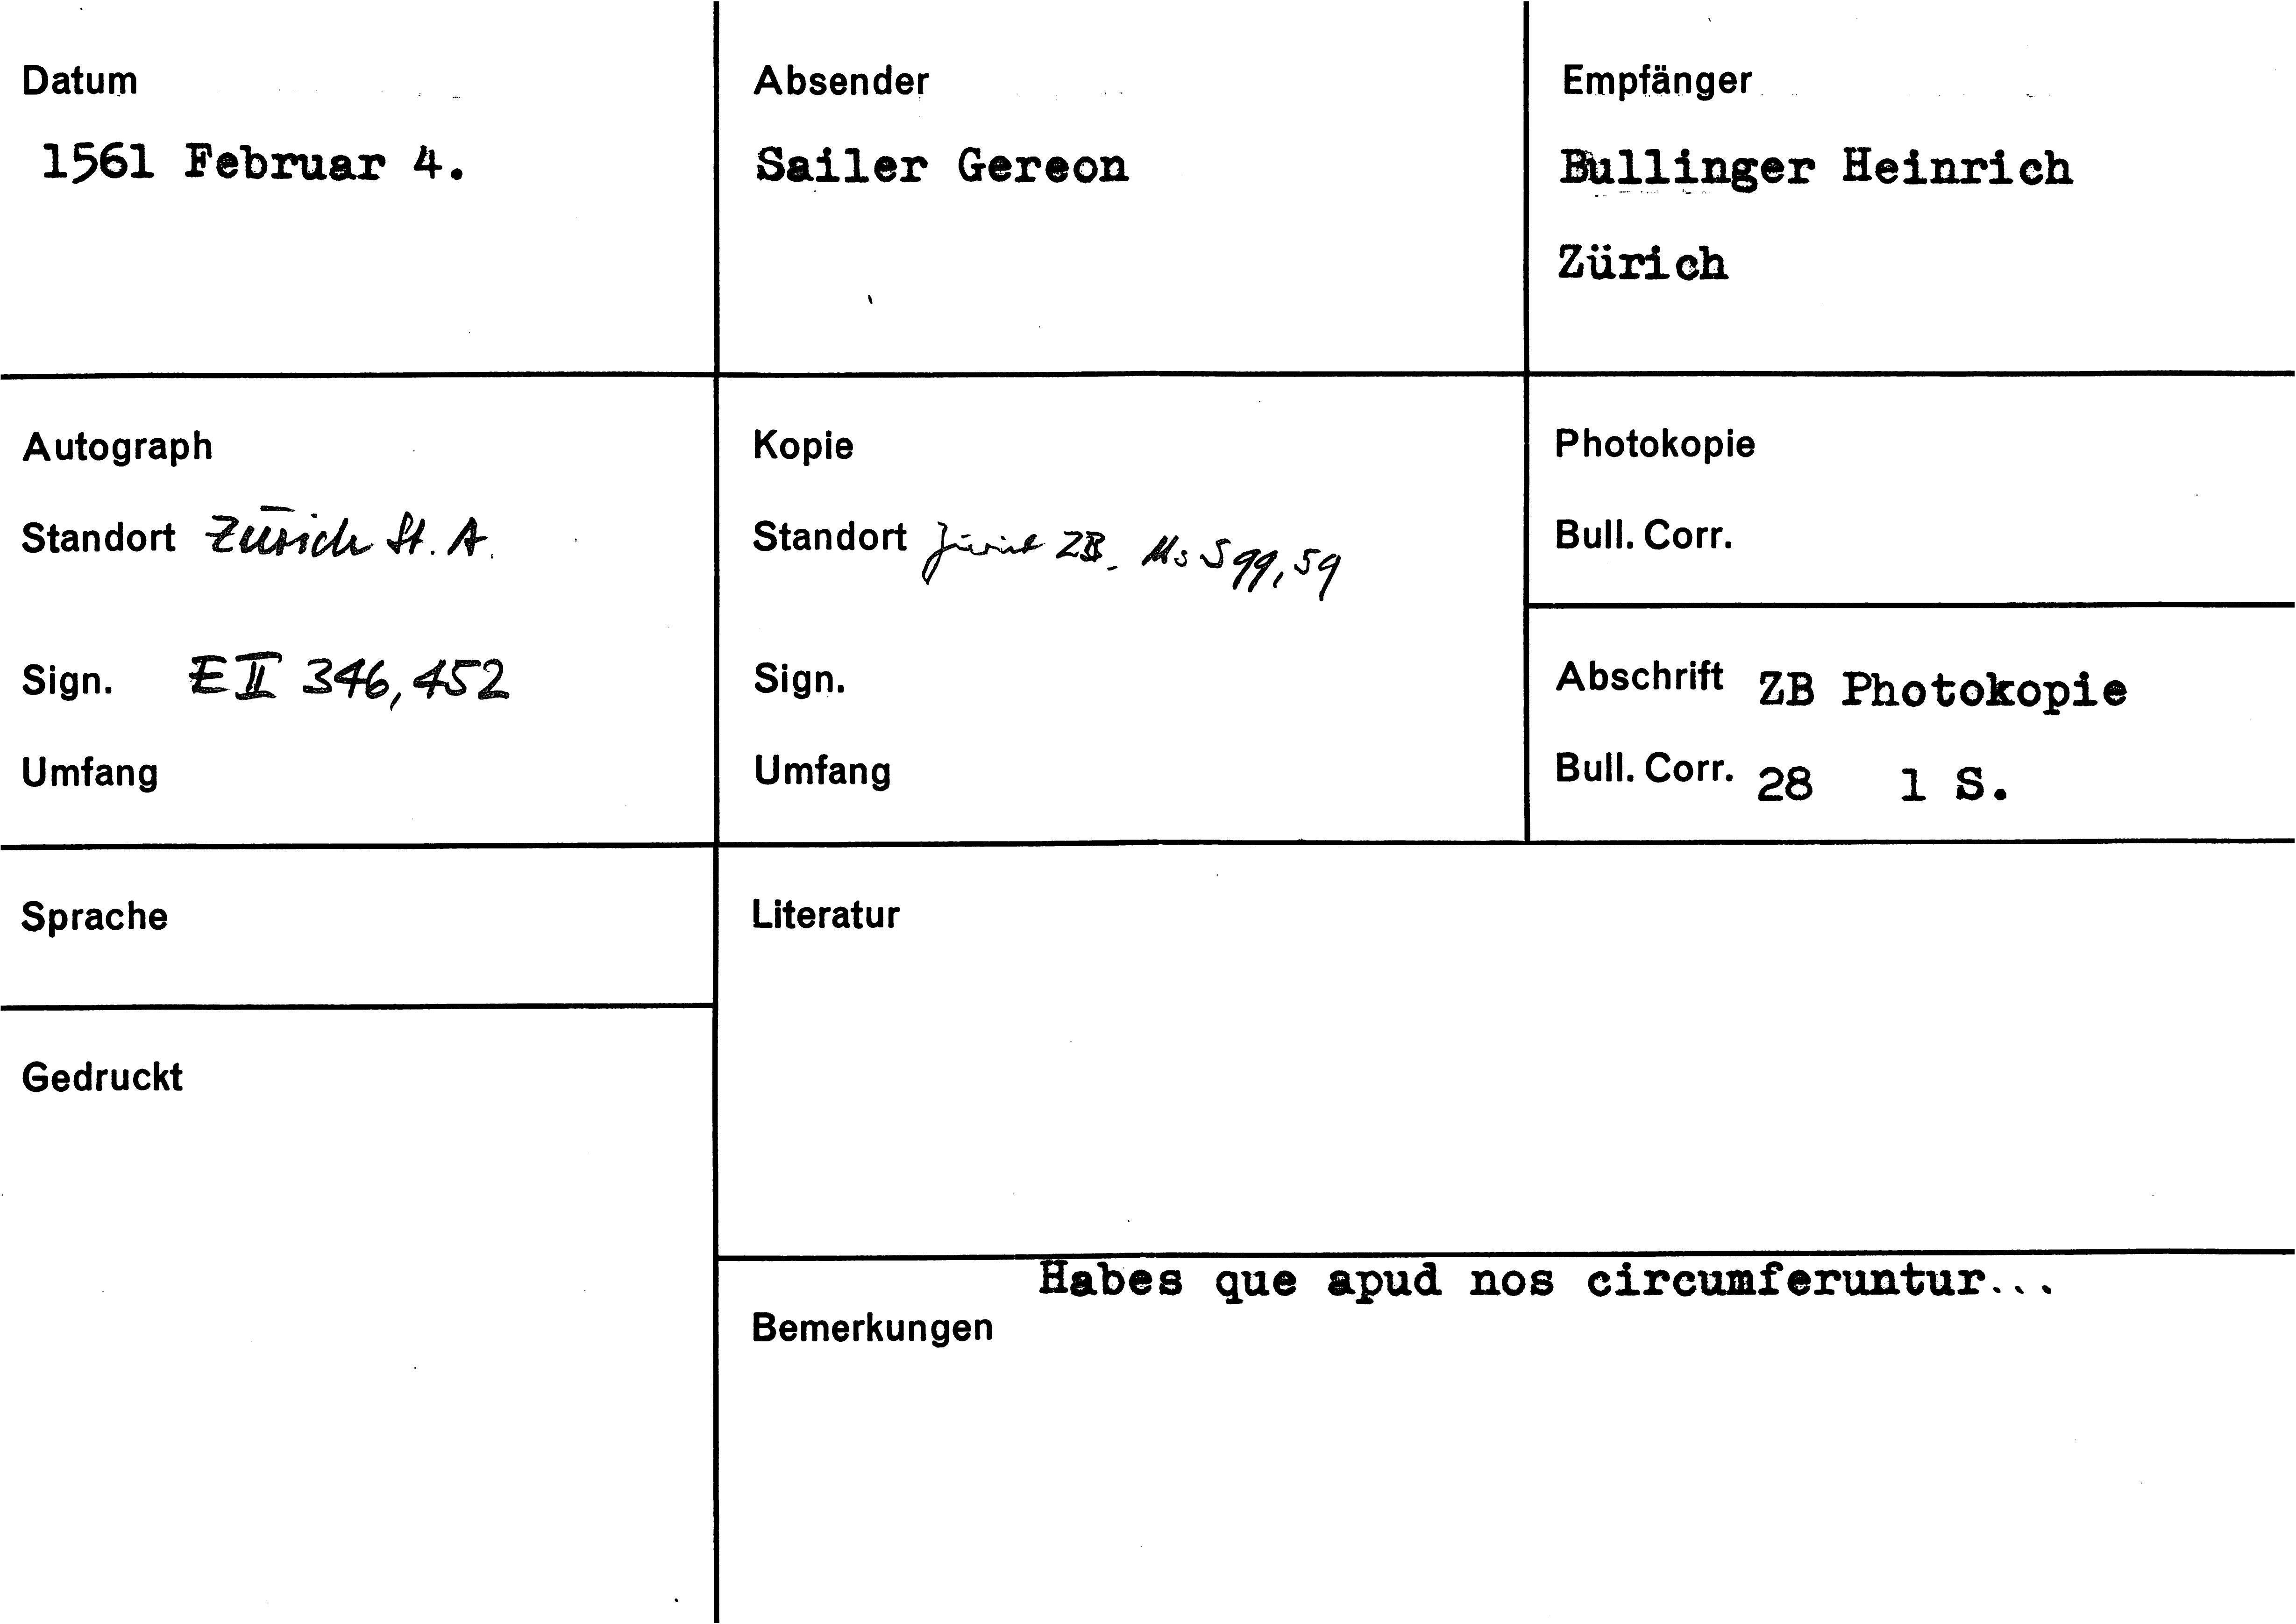 Datum
1561 Februar 4.
Absender
Sailer Gereon
Empfänger
Bullinger Heinrich
Zürich
Autograph
Standort Zürich St. A.
Sign. E II 346, 452
Umfang
Kopie
Standort Zürich ZB. Ms S 99, 59
Sign.
Umfang
Photokopie
Bull. Corr.
Abschrift ZB Photokopie
Bull. Corr. 28 1 S.
Sprache
Gedruckt
Literatur
Habes que apud nos circumferuntur...
Bemerkungen